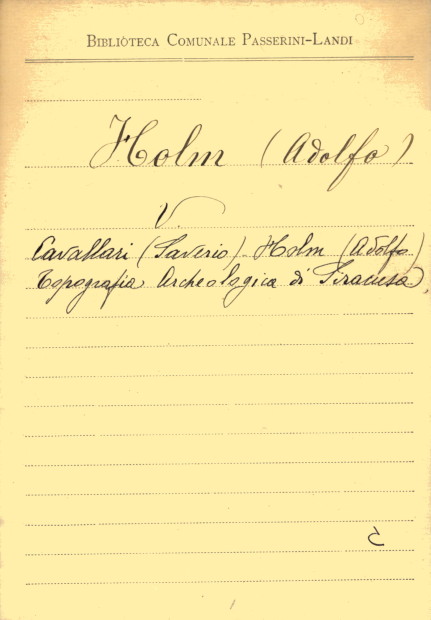 BIBLIOTECA COMUNALE PASSERINI-LANDI
Holm (Adolfo)
V.
Cavallari (Saverio) - Holm (Adolfo)
Topografia Archeologica di Siracusa,